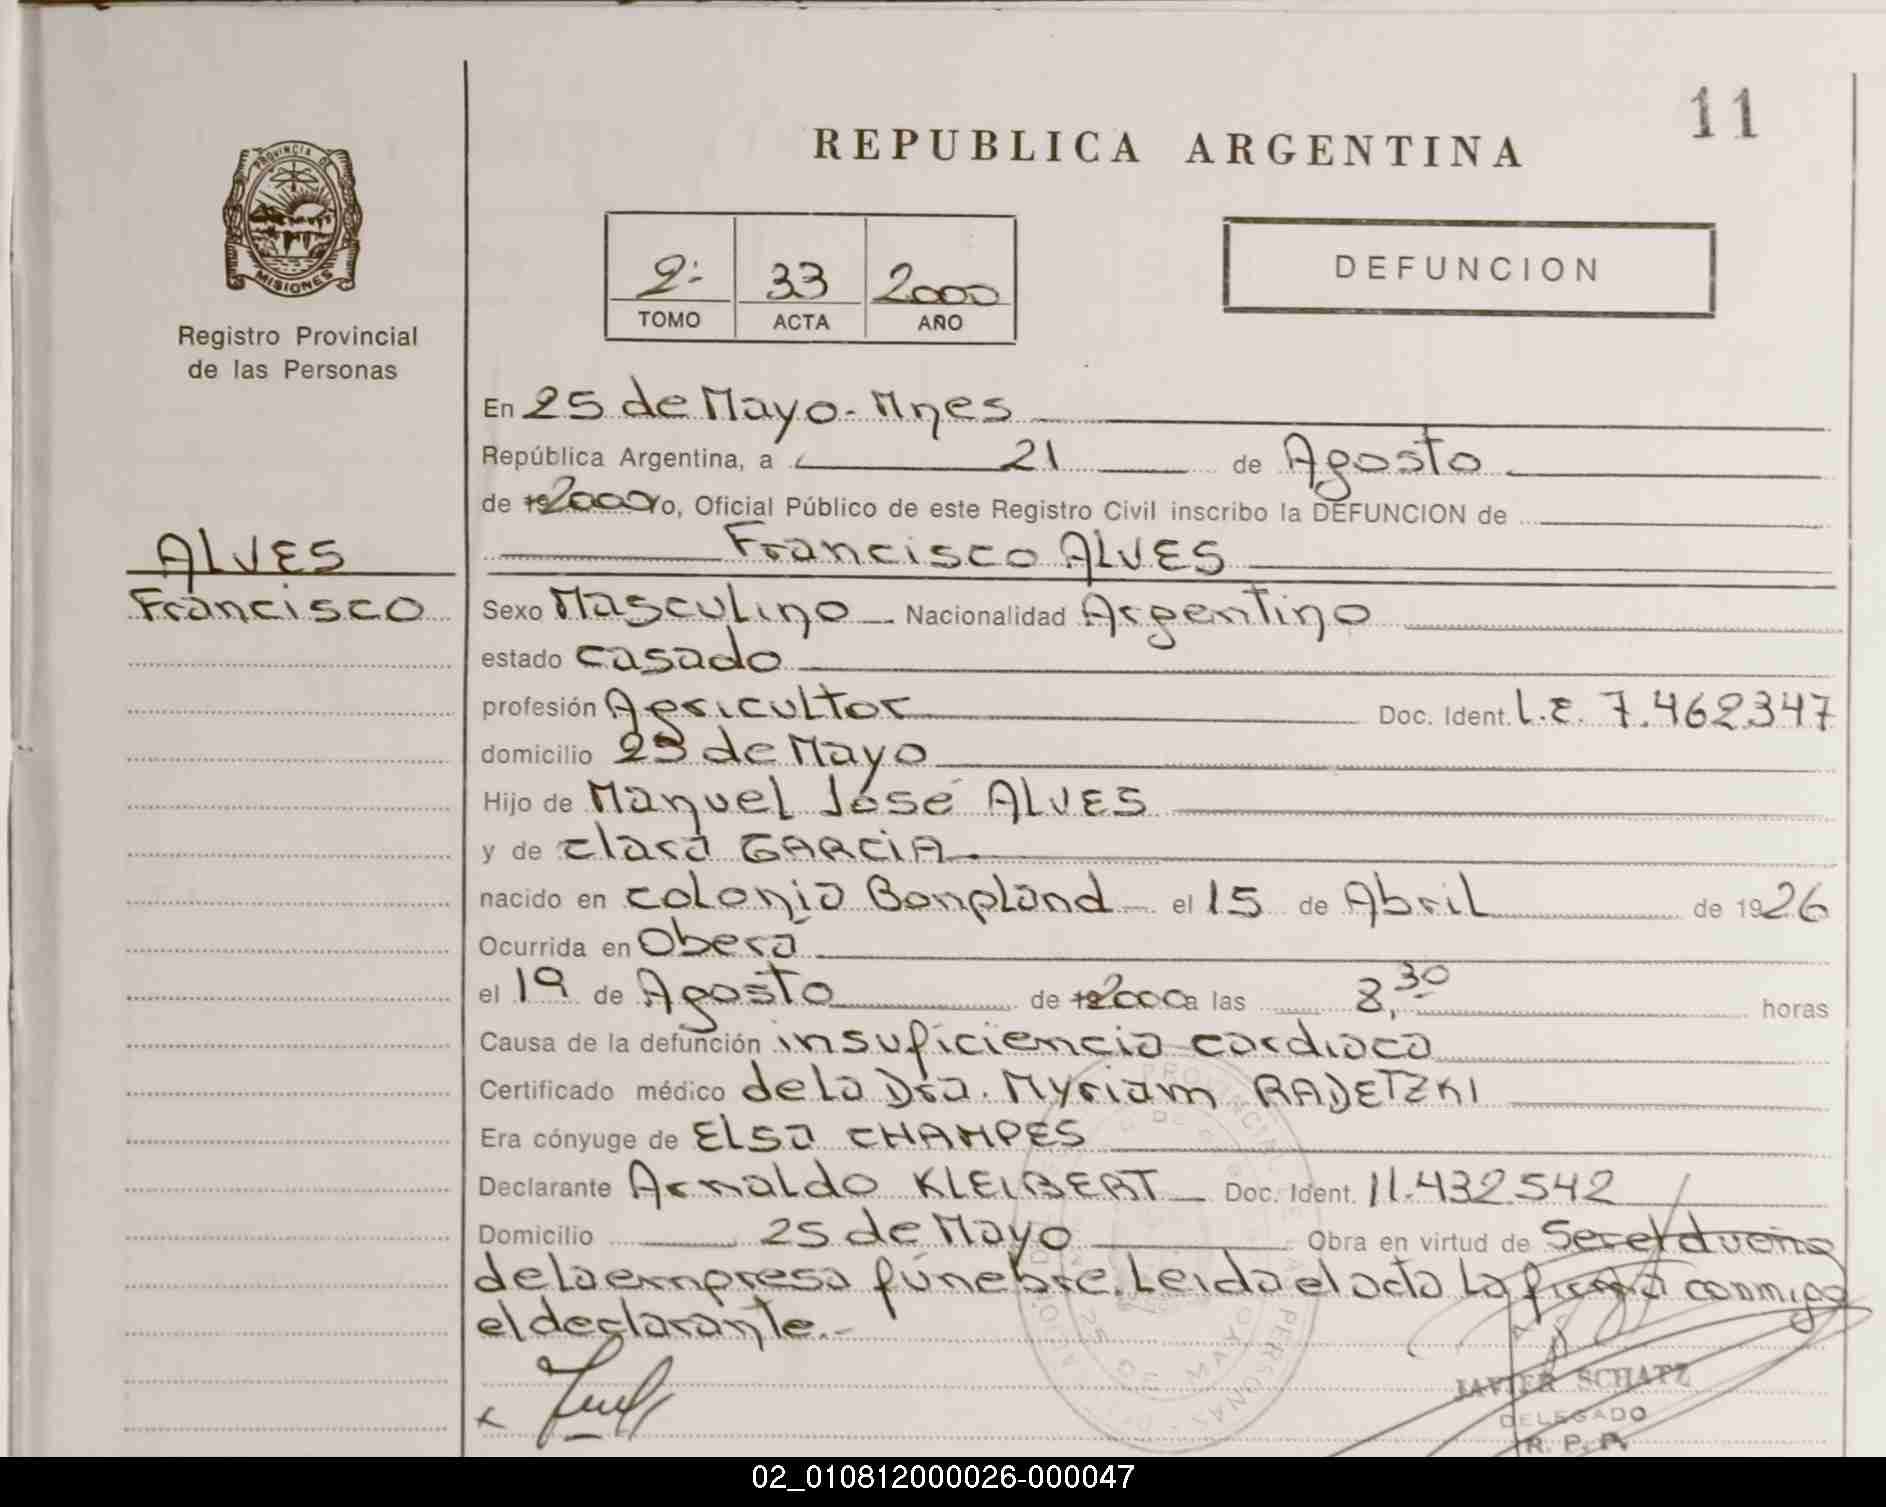 11
REPUBLICA ARGENTINA
PROVINCIA DE
MISIONES
Registro Provincial
de las Personas
2º 33 2000
TOMO ACTA AÑO
DEFUNCION
En 25 de Mayo - Mnes
República Argentina, a 21 de Agosto
de 192000 Yo, Oficial Público de este Registro Civil inscribo la DEFUNCION de
Francisco ALVES
ALVES
Francisco
Sexo Masculino Nacionalidad Argentino
estado casado
profesión Agricultor Doc. Ident. L.E. 7.462347
domicilio 25 de Mayo
Hijo de Manuel José ALVES
y de clara GARCIA
nacido en colonia Bonpland el 15 de Abril de 1926
Ocurrida en Oberá
el 19 de Agosto de 192000 a las 8,30 horas
Causa de la defunción insuficiencia cardiaca
Certificado médico de la Dra. Myriam RADETZKI
Era cónyuge de ELSA CHAMPES
Declarante Arnaldo KLEIBERT Doc. Ident. 11.432542
Domicilio 25 de Mayo Obra en virtud de Ser el dueño
de la empresa fúnebre. Leida el acta La firma conmigo
el declarante.-
x
JAVIER SCHATZ
DELEGADO
R. P. P.
02_010812000026-000047